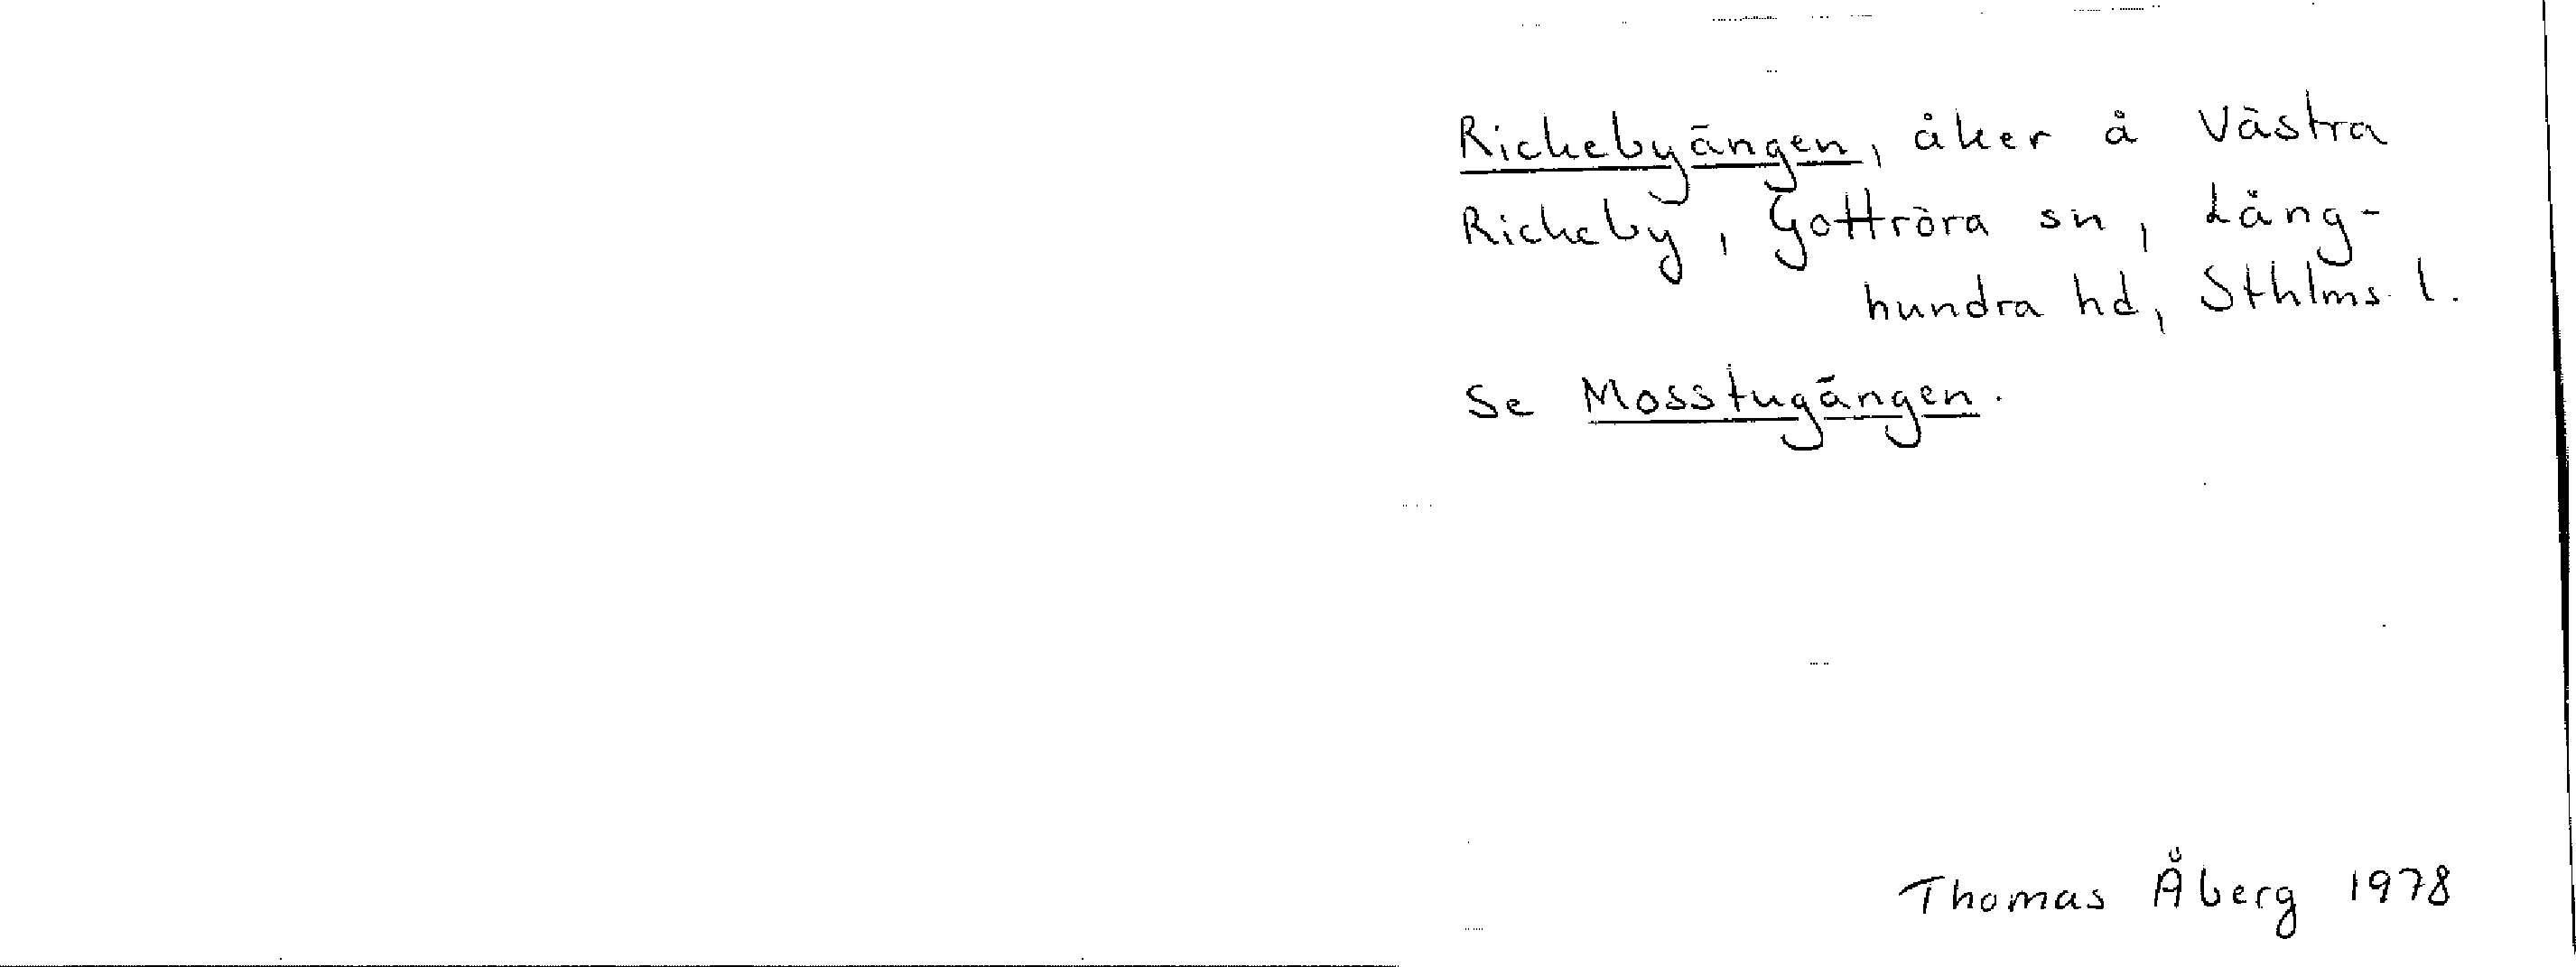 Rickebyängen, åker å Västra
Rickeby, Gottröra sn, Lång-
hundra hd, Sthlms l.
Se Mosstugängen.
Thomas Åberg 1978